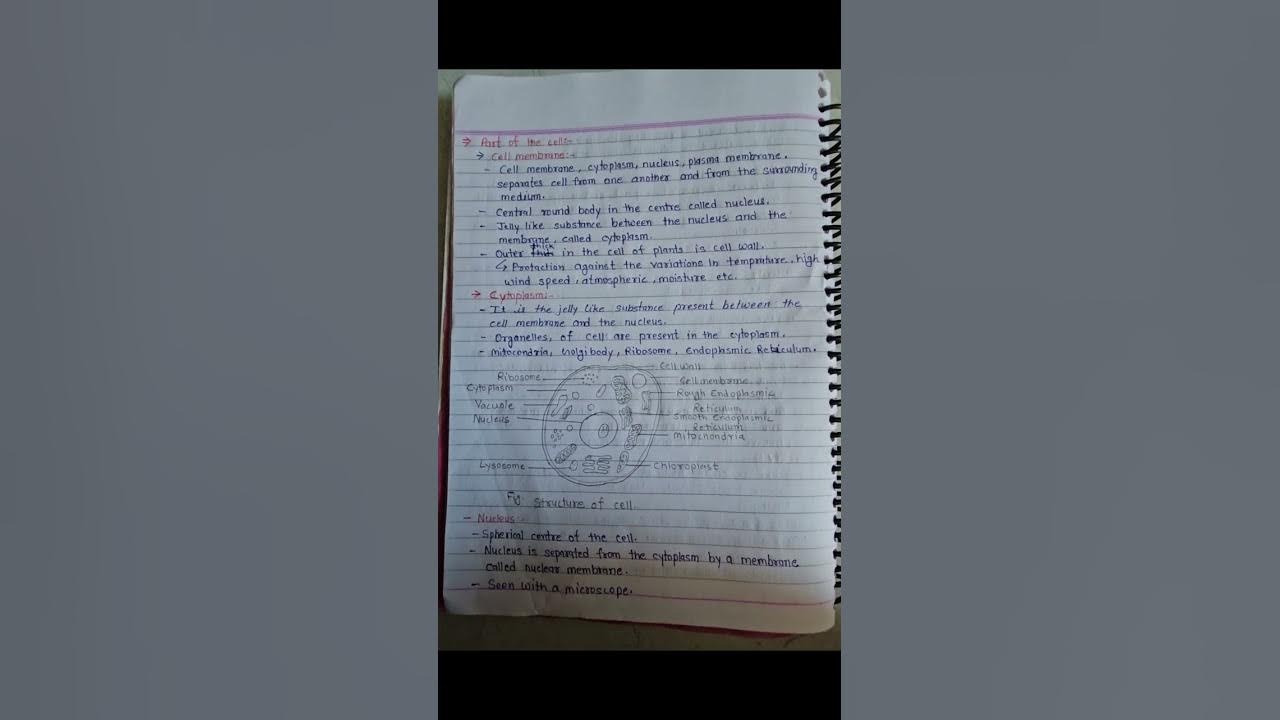 → Part of the cell:-
→ Cell membrane:-
- Cell membrane, cytoplasm, nucleus, plasma membrane.
separates cell from one another and from the surrounding
medium.
- Central round body in the centre called nucleus.
- Jelly like substance between the nucleus and the
membrane, called cytoplasm.
- Outer thick in the cell of plants is cell wall.
↳ Protaction against the variations in temprature, high
wind speed, atmospheric, moisture etc.
→ Cytoplasm:-
- It is the jelly like substance present between the
cell membrane and the nucleus.
- Organelles, of cell are present in the cytoplasm.
- Mitocondria, Golgibody, Ribosome, Endoplasmic Reticulum.
Cell wall
Ribosome
Cell membrane
Cytoplasm
Rough Endoplasmic
Reticulum
Vacuole
Smooth Endoplasmic
Reticulum
Nucleus
Mitochondria
Lysosome
Chloroplast
Fig: Structure of cell.
- Nucleus:-
- Spherical centre of the cell.
- Nucleus is separated from the cytoplasm by a membrane
called nuclear membrane.
- Seen with a microscope.